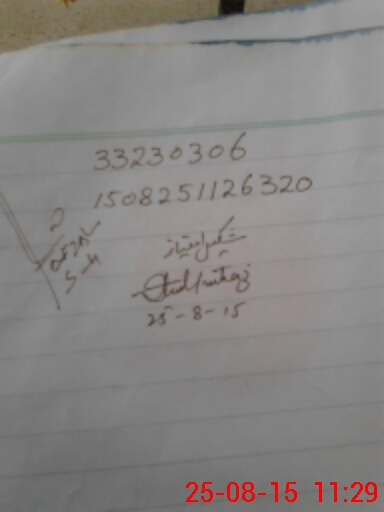 33230306
1508251126320
شکیل امتیاز
25-8-15
25-08-15 11:29